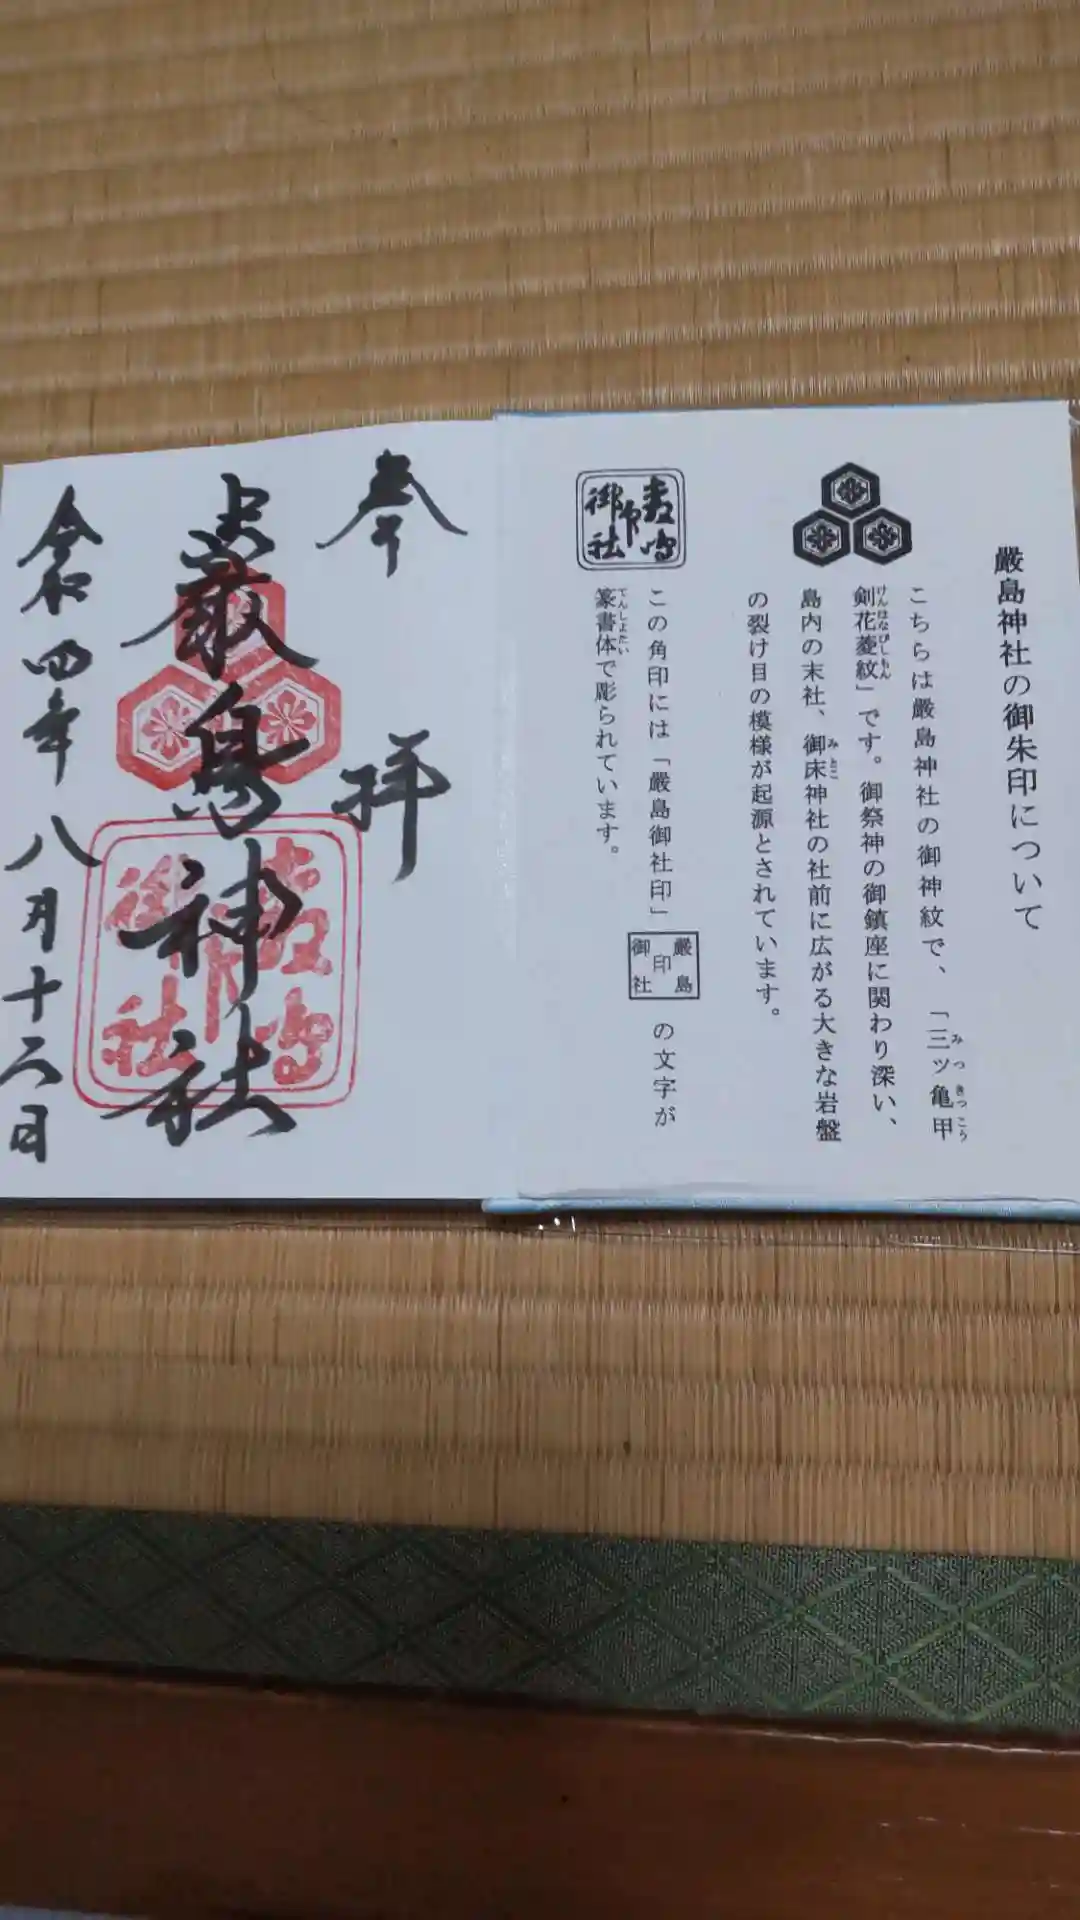 嚴島神社の御朱印について
こちらは嚴島神社の御神紋で、「三ッ亀甲
みつきっこう
剣花菱紋」です。御祭神の御鎮座に関わり深い、
けんはなびしもん
島内の末社、御床神社の社前に広がる大きな岩盤
みとこ
の裂け目の模様が起源とされています。
この角印には「嚴島御社印」
嚴島
印
御社
の文字が
篆書体で彫られています。
てんしょたい
嚴島
印
御社
奉拝
嚴島神社
嚴島
印
御社
令和四年八月十六日